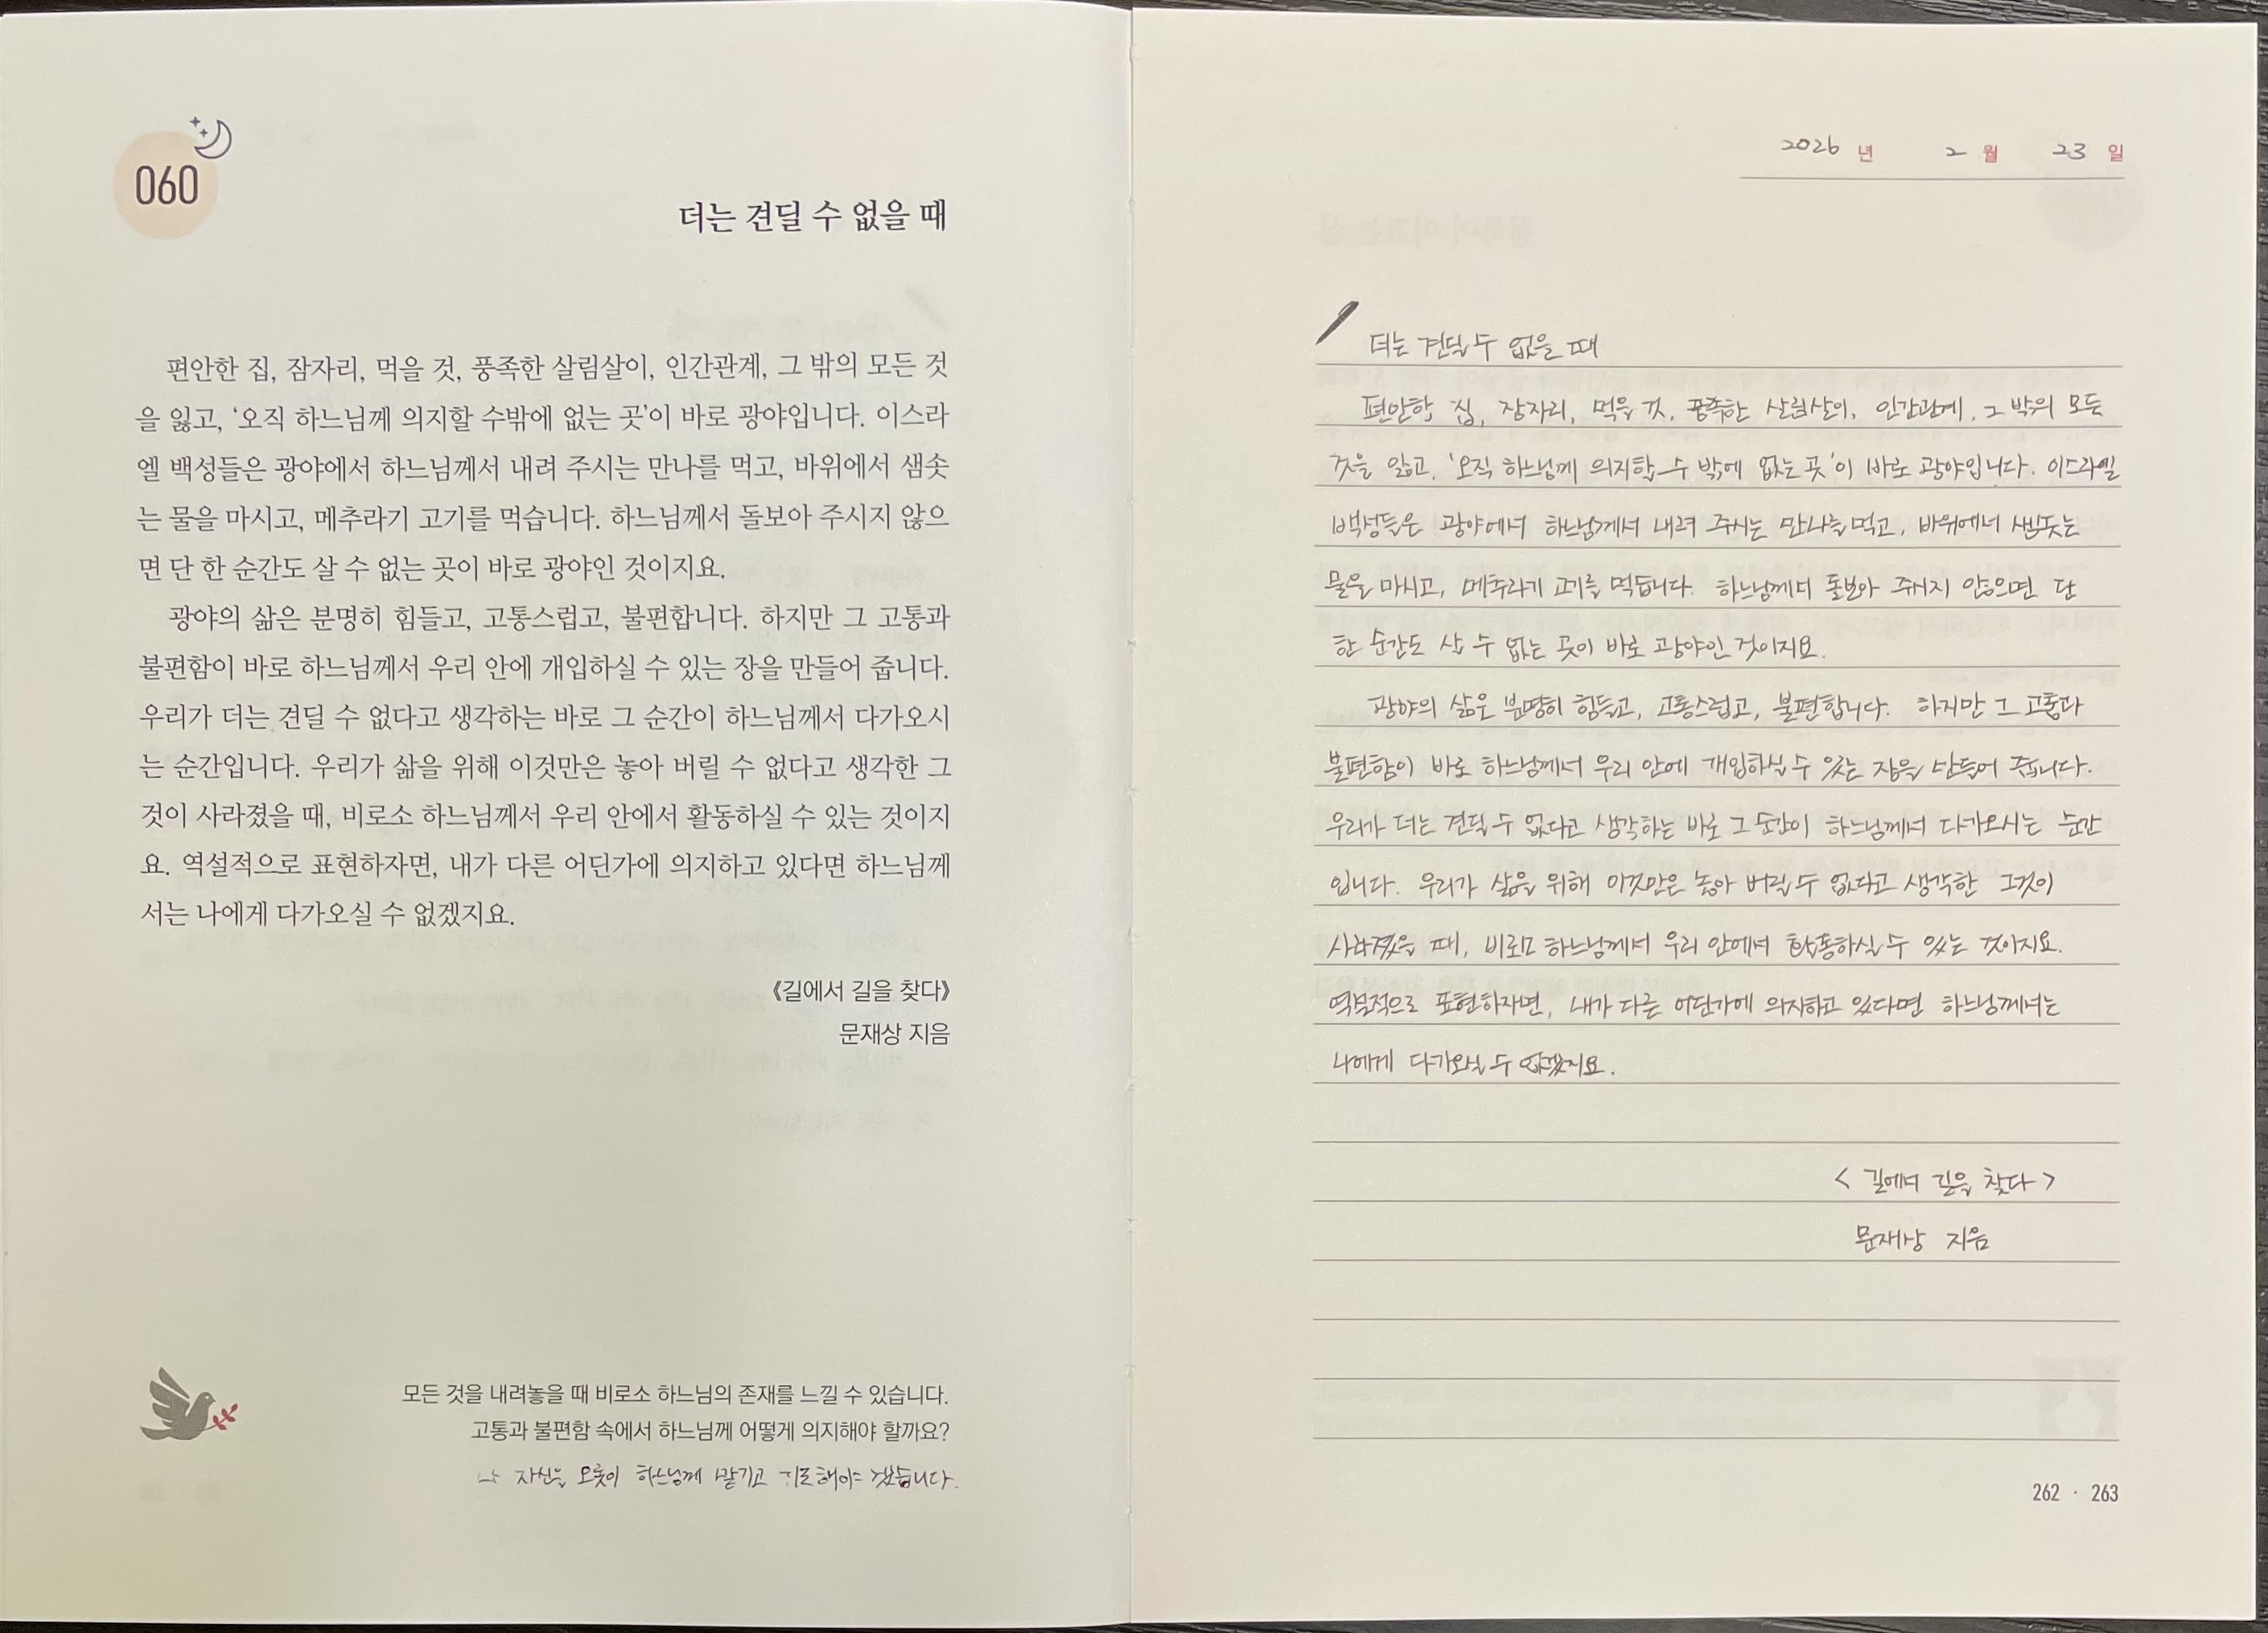 060
더는 견딜 수 없을 때
편안한 집, 잠자리, 먹을 것, 풍족한 살림살이, 인간관계, 그 밖의 모든 것
을 잃고, ‘오직 하느님께 의지할 수밖에 없는 곳’이 바로 광야입니다. 이스라
엘 백성들은 광야에서 하느님께서 내려 주시는 만나를 먹고, 바위에서 샘솟
는 물을 마시고, 메추라기 고기를 먹습니다. 하느님께서 돌보아 주시지 않으
면 단 한 순간도 살 수 없는 곳이 바로 광야인 것이지요.
광야의 삶은 분명히 힘들고, 고통스럽고, 불편합니다. 하지만 그 고통과
불편함이 바로 하느님께서 우리 안에 개입하실 수 있는 장을 만들어 줍니다.
우리가 더는 견딜 수 없다고 생각하는 바로 그 순간이 하느님께서 다가오시
는 순간입니다. 우리가 삶을 위해 이것만은 놓아 버릴 수 없다고 생각한 그
것이 사라졌을 때, 비로소 하느님께서 우리 안에서 활동하실 수 있는 것이지
요. 역설적으로 표현하자면, 내가 다른 어딘가에 의지하고 있다면 하느님께
서는 나에게 다가오실 수 없겠지요.
《길에서 길을 찾다》
문재상 지음
모든 것을 내려놓을 때 비로소 하느님의 존재를 느낄 수 있습니다.
고통과 불편함 속에서 하느님께 어떻게 의지해야 할까요?
↳ 자신을 오롯이 하느님께 맡기고 기도해야 겠습니다.
2026 년 2 월 23 일
더는 견딜 수 없을 때
편안한 집, 잠자리, 먹을 것, 풍족한 살림살이, 인간관계, 그 밖의 모든
것을 잃고, ‘오직 하느님께 의지할 수 밖에 없는 곳’이 바로 광야입니다. 이스라엘
백성들은 광야에서 하느님께서 내려 주시는 만나를 먹고, 바위에서 샘솟는
물을 마시고, 메추라기 고기를 먹습니다. 하느님께서 돌보아 주시지 않으면 단
한 순간도 살 수 없는 곳이 바로 광야인 것이지요.
광야의 삶은 분명히 힘들고, 고통스럽고, 불편합니다. 하지만 그 고통과
불편함이 바로 하느님께서 우리 안에 개입하실 수 있는 장을 만들어 줍니다.
우리가 더는 견딜 수 없다고 생각하는 바로 그 순간이 하느님께서 다가오시는 순간
입니다. 우리가 삶을 위해 이것만은 놓아 버릴 수 없다고 생각한 그것이
사라졌을 때, 비로소 하느님께서 우리 안에서 활동하실 수 있는 것이지요.
역설적으로 표현하자면, 내가 다른 어딘가에 의지하고 있다면 하느님께서는
나에게 다가오실 수 없겠지요.
< 길에서 길을 찾다 >
문재상 지음
262 · 263